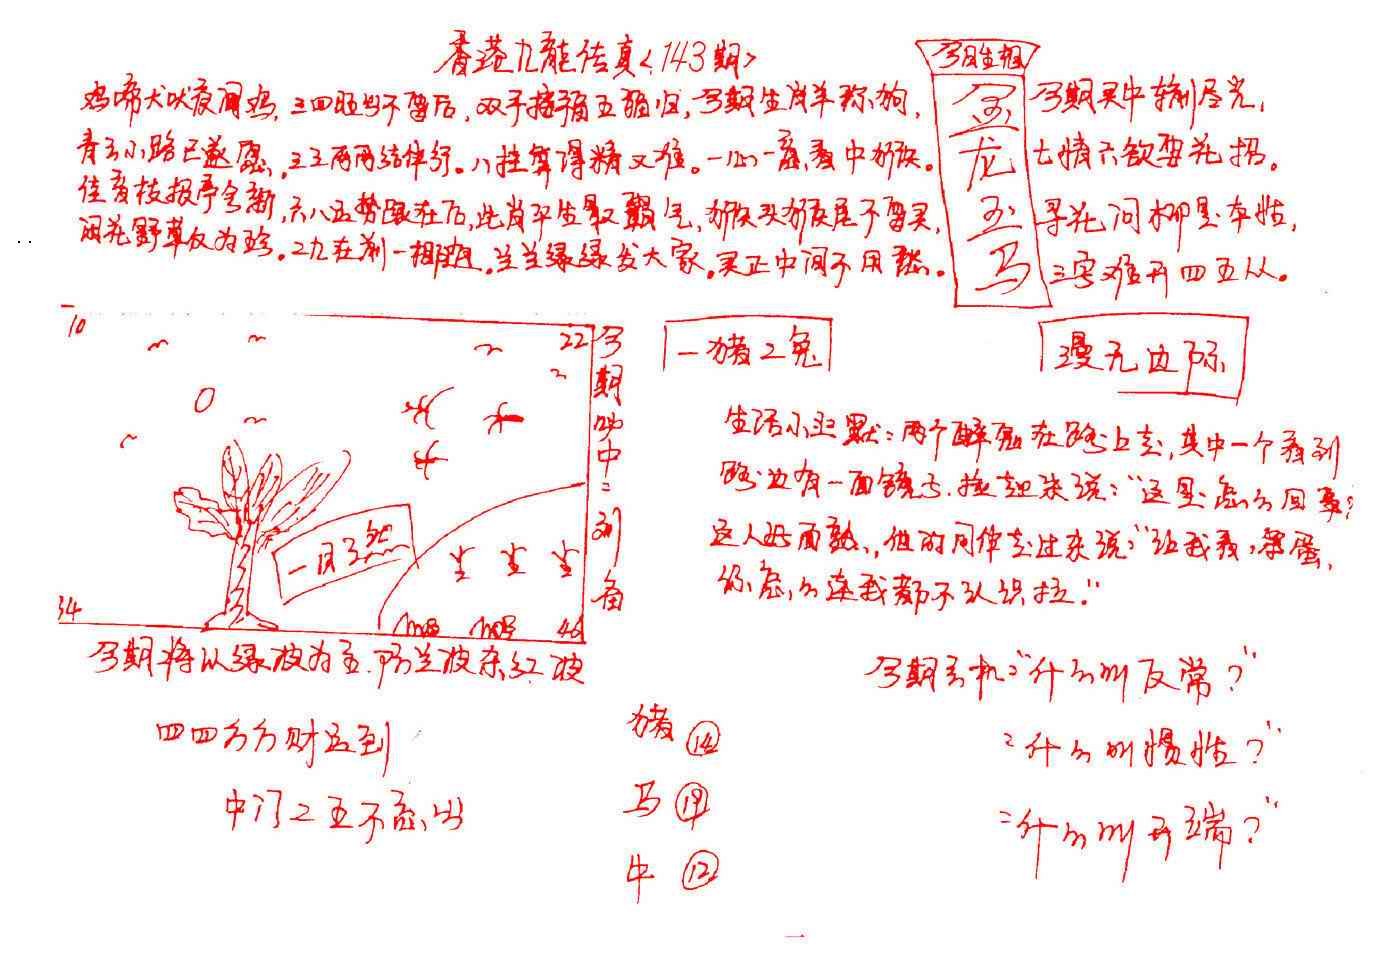 香港九龍传真<143期>
今日生相
鸡啼犬吠夜闻鸡,三四旺出不要后,双手接福五福归,今期生肖羊称狗,
金龙玉马
今期买中输尽光,
青云小路已遂愿。三五两两结伴行。八挂算得精又准。一心一意看中猴。
七情六欲要花招。
佳音枝报亭台新,六八五势跟在后,此肖平生最霸气,猴头猴尾不要买,
寻花问柳是本性,
闲花野草仅为珍。二九在前一排跑。兰兰绿绿发大家。买正中间不用愁。
三字难开四五从。
10
22
一猪二兔
漫无边际
今期必中二列名
一目了然
34
46
生活小幽默:两个醉鬼在路上走,其中一个看到
路边有一面镜子,捡起来说:“这是怎么回事?
这人好面熟,他的同伴走过来说:“让我看,笨蛋,
你怎么连我都不认识拉.”
今期将以绿波为主.防兰波杀红波
今期玄机:“什么叫反常?”
四四方方财运到
猪 14
:“什么叫惯性?”
中门二五不意出
马 19
:“什么叫开端?”
牛 12